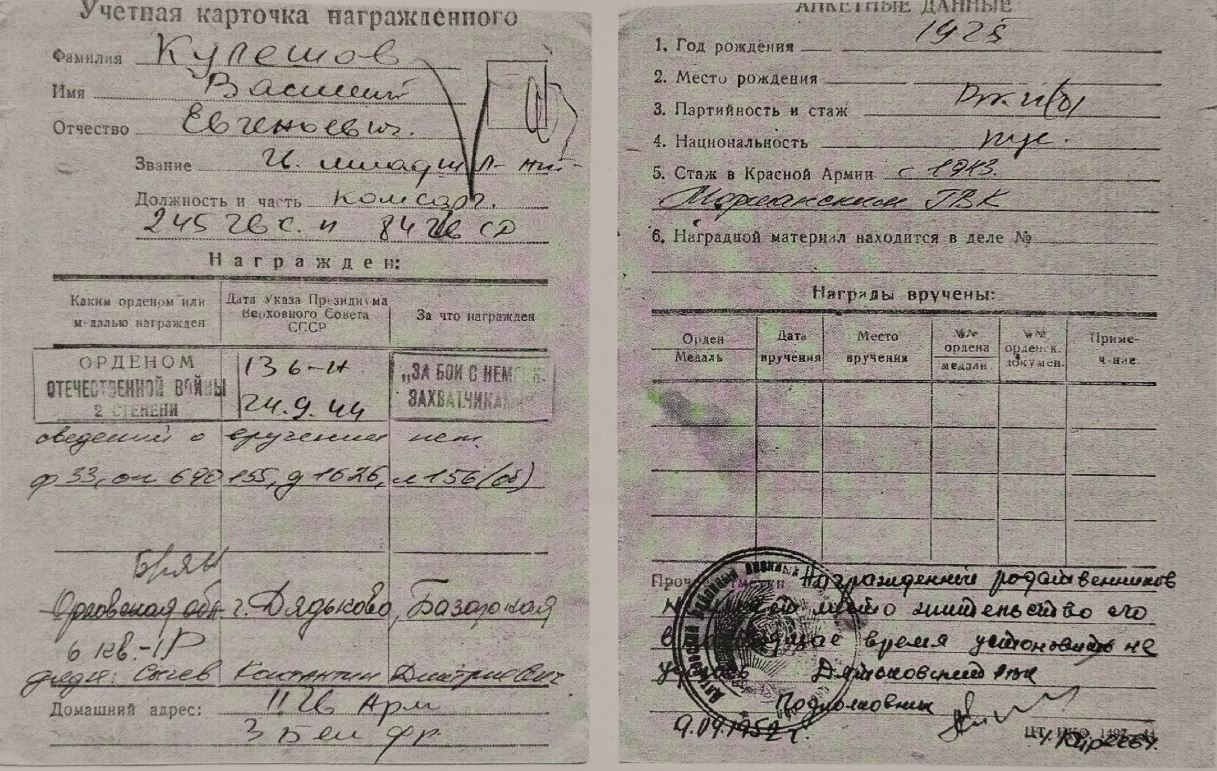 Учетная карточка награжденного
Фамилия Кулешов
Имя Василий
Отчество Евгеньевич.
Звание Г. младш. л-нт
Должность и часть комсорг.
245 гв с. п 84 гв сд
Награжден:
Каким орденом или медалью награжден
Дата Указа Президиума Верховного Совета СССР
За что награжден
ОРДЕНОМ
ОТЕЧЕСТВЕННОЙ ВОЙНЫ
2 СТЕПЕНИ
136-н
24.9.44
„ЗА БОИ С НЕМ
ЗАХВАТЧИКАМИ
сведений о вручении нет
ф 33, оп 690155, д 1626, л 156 (об)
Брян
Орловская обл г. Дядьково, Базарная
6 кв.-1
дядя: Константин Дмитриевич
Домашний адрес: 11 Гв Арм
3 Бел фр
АНКЕТНЫЕ ДАННЫЕ
1. Год рождения 1925
2. Место рождения
3. Партийность и стаж ВЛКСМ
4. Национальность рус.
5. Стаж в Красной Армии с 1943.
ГВК
6. Наградной материал находится в деле №
Награды вручены:
Орден
Медаль
Дата вручения
Место вручения
№№ ордена медали
№№ орденск. докумен.
Приме-чание
Награжденный родственников
место жительство его
в время установить не
Дятьковский РВК
Подполковник
9.09.1952 г.